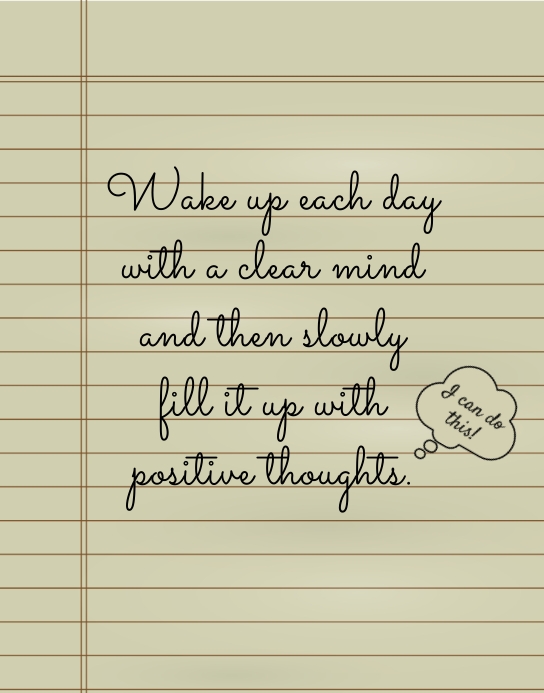 Wake up each day
with a clear mind
and then slowly
fill it up with
positive thoughts.
I can do
this!